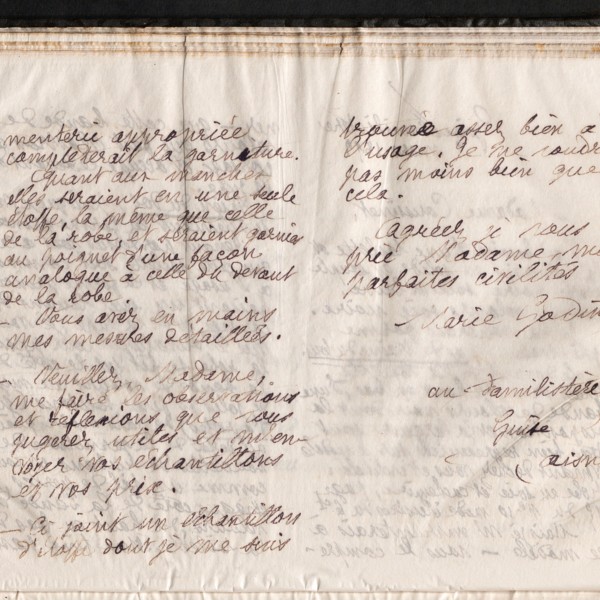 menterie appropriée
compléterait la garniture.
Quant aux manches
elles seraient en une seule
étoffe la même que celle
de la robe, et seraient garnies
au poignet d'une façon
analogue à celle du devant
de la robe.
- Vous avez en mains
mes mesures détaillées.
- Veuillez, Madame,
me faire les observations
et réflexions que vous
jugerez utiles et m'en-
voyer vos échantillons
et vos prix.
- Ci joint un échantillon
d'étoffe dont je me suis
trouvée assez bien à
l'usage. Je ne voudr
pas moins bien que
cela.
Agréez, je vous
prie Madame, me
parfaites civilités
Marie Godin
au Familistère
Guise
Aisn